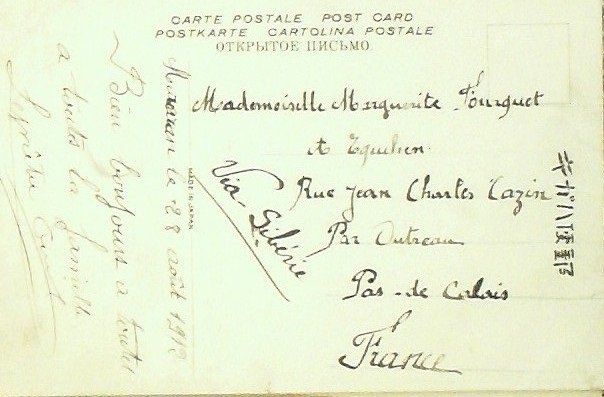 CARTE POSTALE POST CARD
POSTKARTE CARTOLINA POSTALE
ОТКРЫТОЕ ПИСЬМО
Mademoiselle Marguerite Fourquet
à Equihen
Rue Jean Charles Cazin
Par Outreau
Pas-de Calais
France
Via Sibérie
MADE IN JAPAN
le 28 août 1912
Bien bonjour à toutes
à toutes la famille